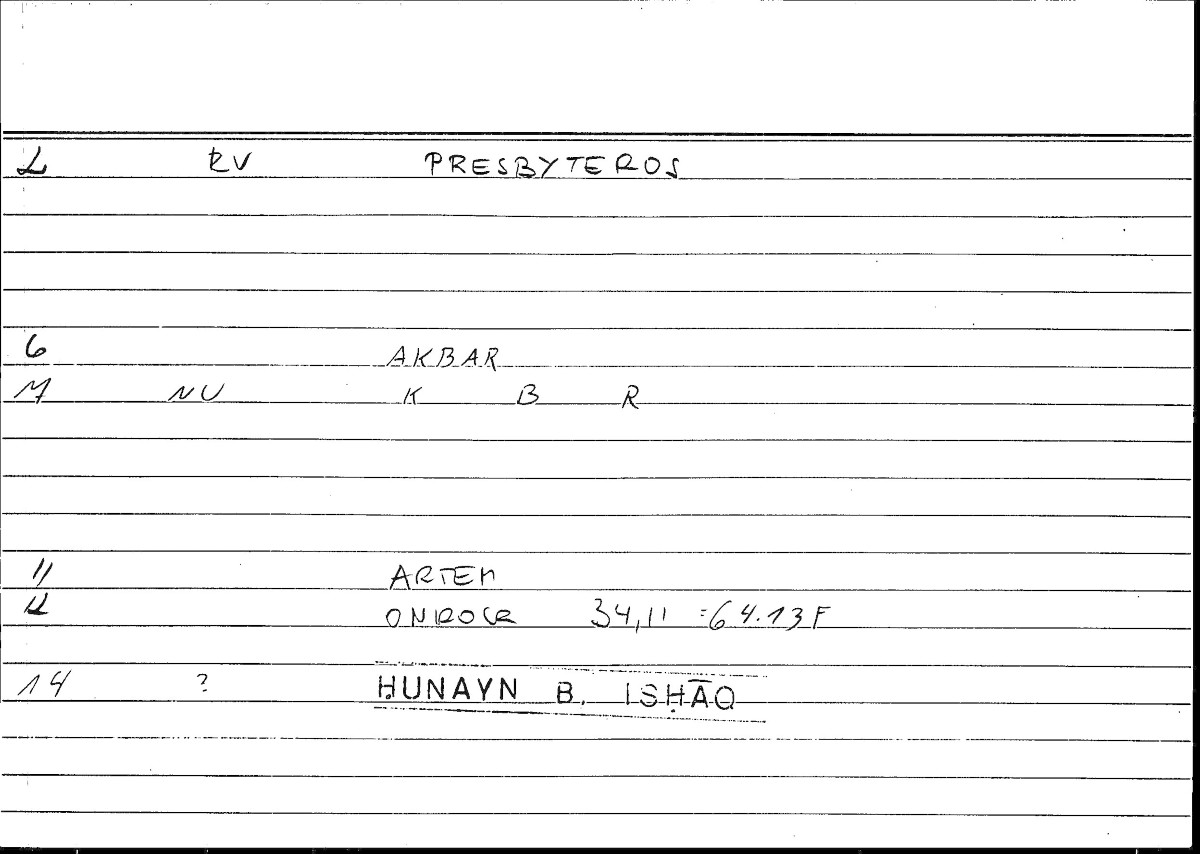 1 PRESBYTEROS
6 AKBAR
7 NU K B R
11 ARTEM
12 ONIROCR 34,11 =64.13F
14 ? ḤUNAYN B. ISḤĀQ